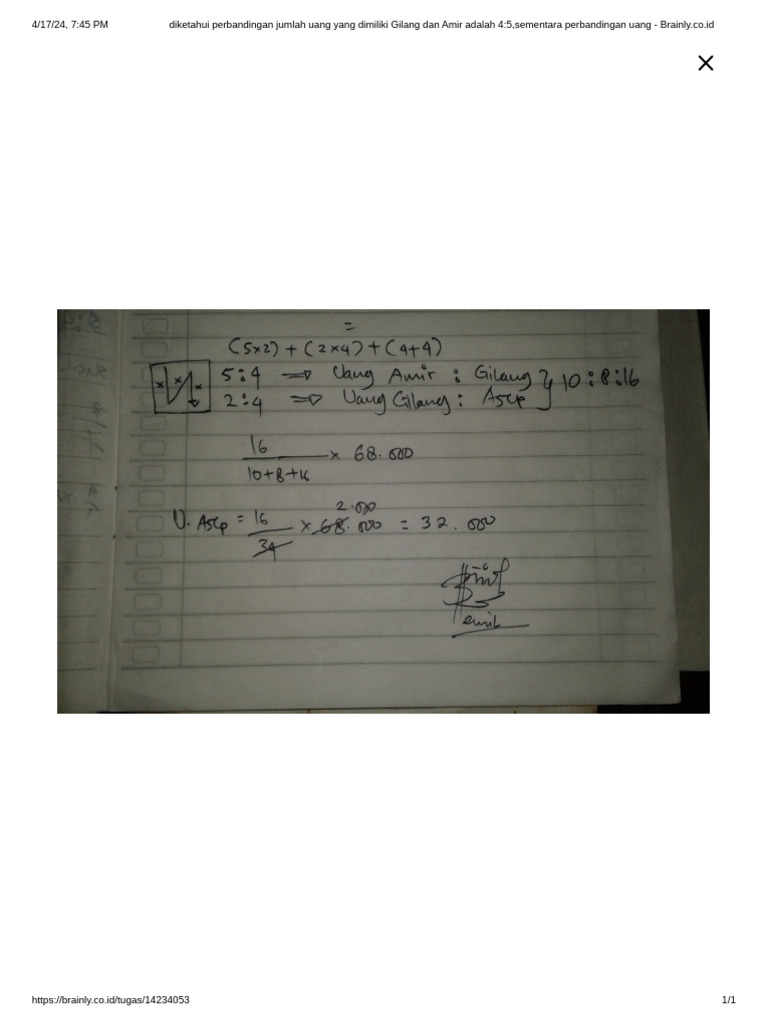 4/17/24, 7:45 PM diketahui perbandingan jumlah uang yang dimiliki Gilang dan Amir adalah 4:5,sementara perbandingan uang - Brainly.co.id
=
(5x2) + (2x4) + (4+4)
5:4 ⇒ Uang Amir : Gilang } 10:8:16
2:4 ⇒ Uang Gilang : Asep
16
x 68.000
10+8+16
2.000
U. Asep = 16/34 x 68.000 = 32.000
emil
https://brainly.co.id/tugas/14234053 1/1